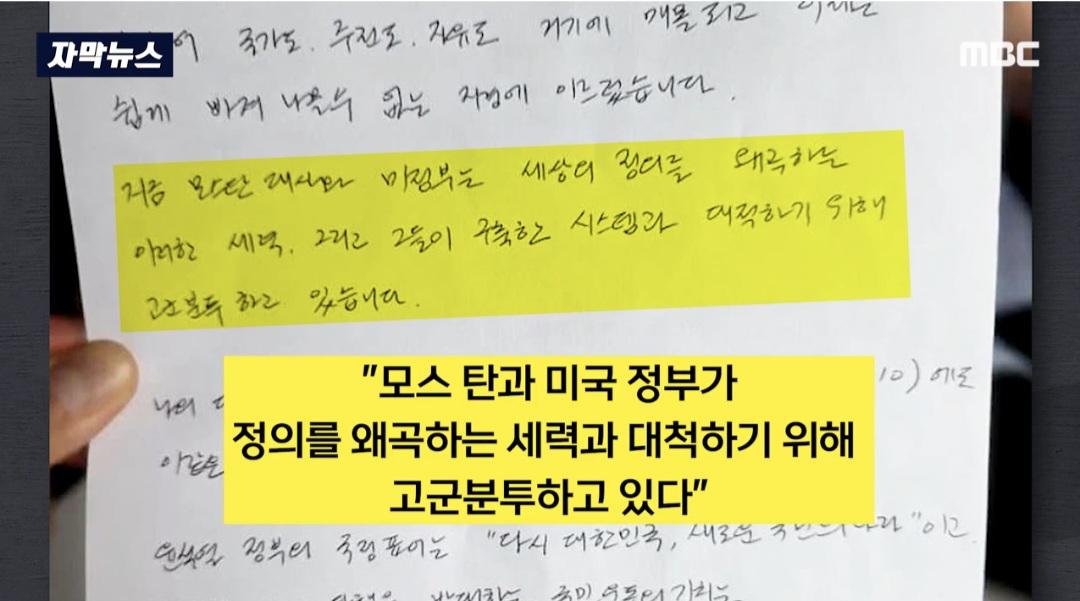 자막뉴스
MBC
국가도, 주권도, 자유도 거기에 매몰되고
쉽게 빠져 나올수 없는 지경에 이르렀습니다.
지금 모스탄 대사와 미정부는 세상의 정의를 왜곡하는
이러한 세력, 그리고 그들이 구축한 시스템과 대적하기 위해
고군분투 하고 있습니다.
"모스 탄과 미국 정부가
정의를 왜곡하는 세력과 대척하기 위해
고군분투하고 있다"
나의 10) 에도
윤석열 정부의 국정표어는 "다시 대한민국, 새로운 국민의 나라"이고